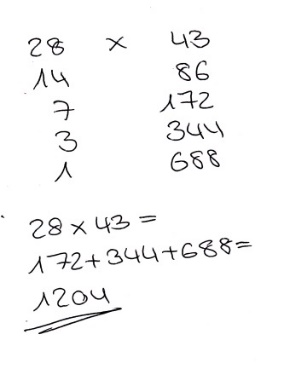 28 × 43
14 86
7 172
3 344
1 688
28 × 43 =
172+344+688=
1204